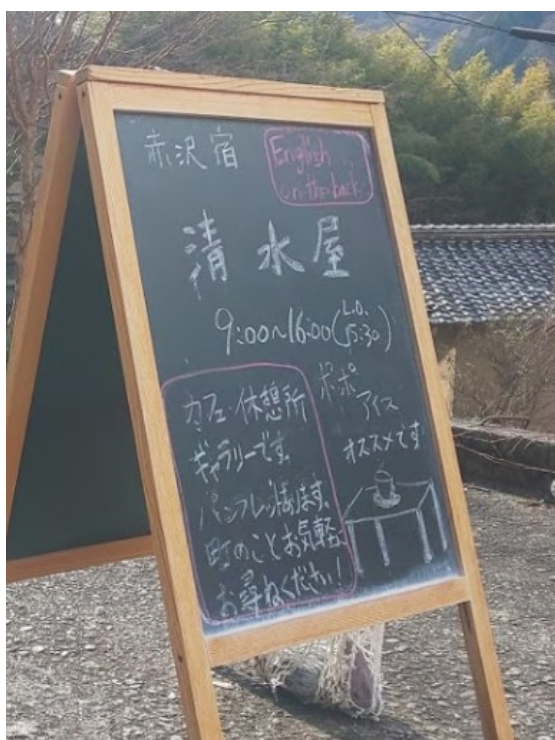 赤沢宿
English
on the back
清水屋
9:00~16:00(L.O.
15:30)
カフェ・休憩所
ギャラリーです。
パンフレットあります。
町のことお気軽に
お尋ねください!
ポポ
アイス
オススメです